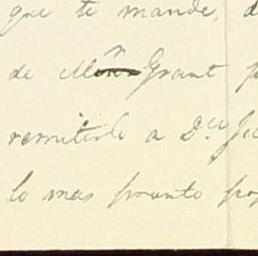 que te mande, d
de Mr Grant p
remitirlo a D.
lo mas pronto pos